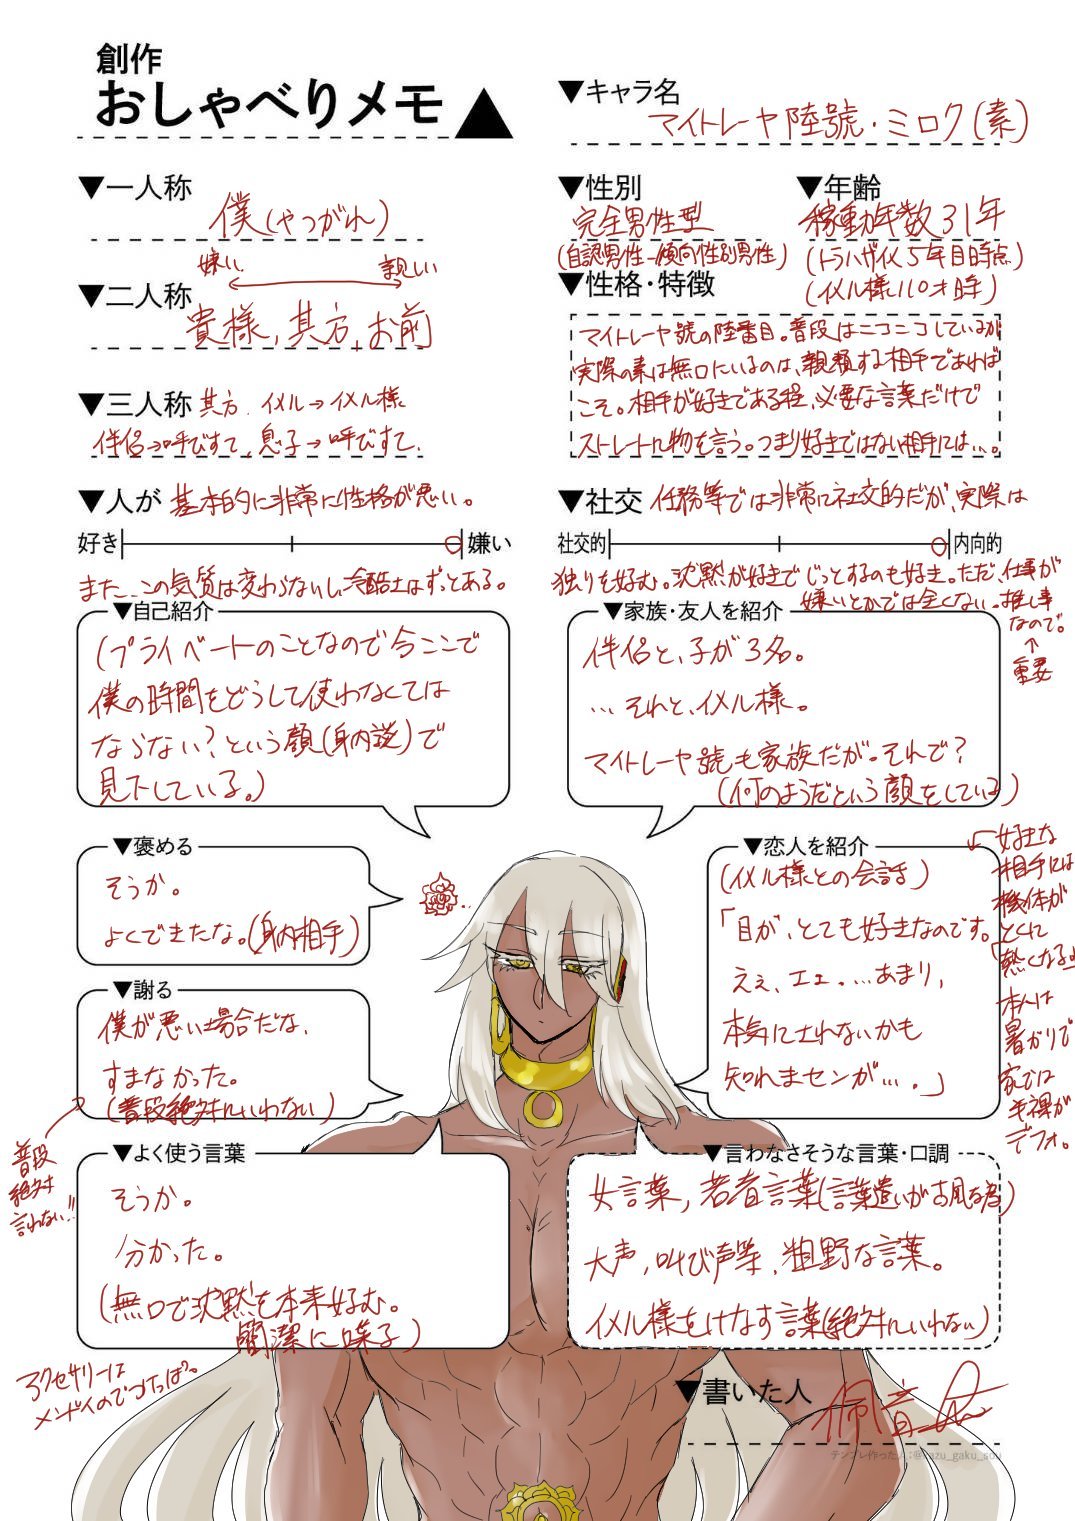 創作
おしゃべりメモ▲
▼キャラ名
マイトレーヤ陸號・ミロク(素)
▼一人称
僕(やつがれ)
▼性別
完全男性型
(自認男性-傾向性別男性)
▼年齢
稼動年数31年
(トラハザイム5年目時点)
(イメル様110才時)
▼二人称
嫌い 親しい
貴様,其方,お前
▼三人称 其方. イメル→イメル様
伴侶→呼びすて,息子→呼びすて.
▼性格・特徴
マイトレーヤ號の陸番目。普段はニコニコしているが
実際の素は無口にいるのは、親類する相手であれば
こそ。相手が好きである程、必要な言葉だけで
ストレートに物を言う。つまり好きではない相手には…。
▼人が 基本的に非常に性格が悪い。
好き 嫌い
また、この気質は変わらないし冷酷さはずっとある。
▼社交 任務等では非常に社交的だが、実際は
社交的 内向的
独りを好む。沈黙が好きでじっとするのも好き。ただ、仕事が
嫌いとかでは全くない。推し事
なので。
↑
重要
▼自己紹介
(プライベートのことなので今ここで
僕の時間をどうして使わなくては
ならない?という顔(身内談)で
見下している。)
▼家族・友人を紹介
伴侶と、子が3名。
…それと、イメル様。
マイトレーヤ號も家族だが。それで?
(何のようだという顔をしている)
▼褒める
そうか。
よくできたな。(身内相手)
▼謝る
僕が悪い場合だな、
すまなかった。
(普段絶対にいわない)
普段
絶対
言わない!!
▼恋人を紹介
(イメル様との会話)
「目が、とても好きなのです。
えぇ、エェ。…あまり、
本気にされないかも
知れまセンが…。」
←好きな
相手には
機体が
とくに
「熱くなる」
本人は
暑がりで
家では
半裸が
デフォ。
▼よく使う言葉
そうか。
分かった。
(無口で沈黙を本来好む。
簡潔に喋る)
▼言わなさそうな言葉・口調
女言葉,若者言葉(言葉遣いが古風な者)
大声,叫び声等,粗野な言葉。
イメル様をけなす言葉(絶対にいわない)
アクセサリーは
メンドイのでコレだけ。
▼書いた人
佩音
テンプレ作った人:@kazu_gaku_sou